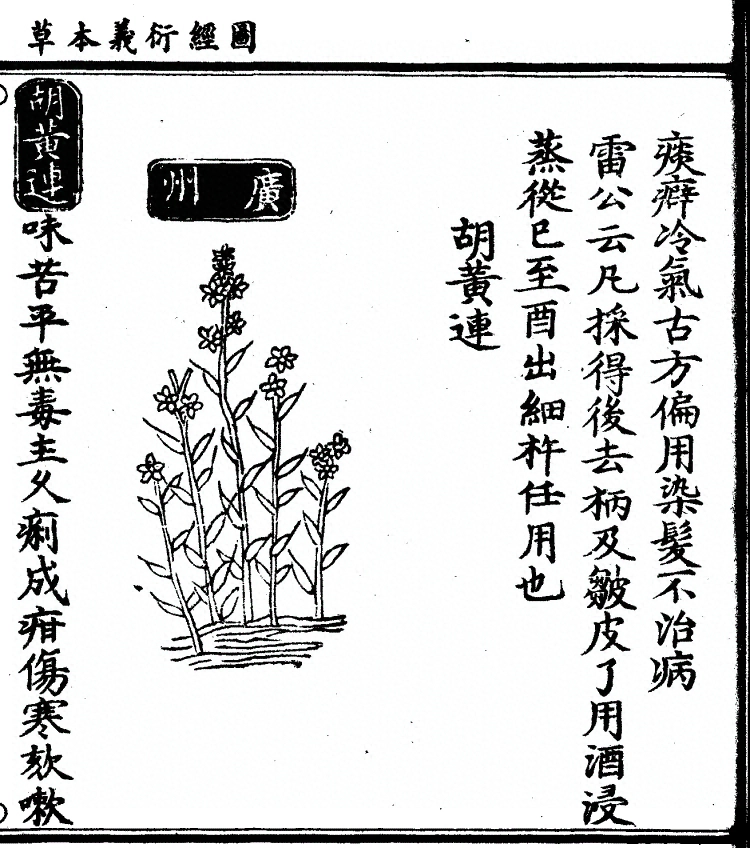 圖經衍義本草
痰癖冷氣古方偏用染髮不治病
雷公云凡採得後去柄及皺皮了用酒浸
蒸從巳至酉出細杵任用也
胡黃連
廣州
胡黃連味苦平無毒主久痢成疳傷寒欬嗽